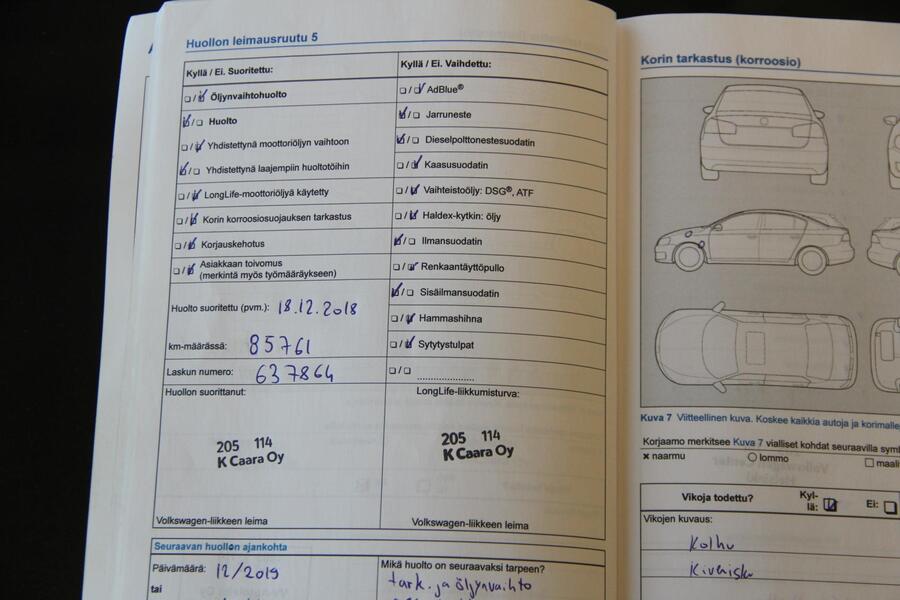 Huollon leimausruutu 5
Kyllä / Ei. Suoritettu:
Öljynvaihtohuolto
Huolto
Yhdistettynä moottoriöljyn vaihtoon
Yhdistettynä laajempiin huoltotöihin
LongLife-moottoriöljyä käytetty
Korin korroosiosuojauksen tarkastus
Korjauskehotus
Asiakkaan toivomus
(merkintä myös työmääräykseen)
Huolto suoritettu (pvm.): 18.12.2018
km-määrässä: 85761
Laskun numero: 637864
Huollon suorittanut:
205 114
K Caara Oy
Volkswagen-liikkeen leima
Kyllä / Ei. Vaihdettu:
AdBlue®
Jarruneste
Dieselpolttonestesuodatin
Kaasusuodatin
Vaihteistoöljy: DSG®, ATF
Haldex-kytkin: öljy
Ilmansuodatin
Renkaantäyttöpullo
Sisäilmansuodatin
Hammashihna
Sytytystulpat
LongLife-liikkumisturva:
205 114
K Caara Oy
Volkswagen-liikkeen leima
Seuraavan huollon ajankohta
Päivämäärä: 12/2019
tai
Mikä huolto on seuraavaksi tarpeen?
tark. ja öljynvaihto
Korin tarkastus (korroosio)
Kuva 7 Viitteellinen kuva. Koskee kaikkia autoja ja
Korjaamo merkitsee Kuva 7 vialliset kohdat seuraavilla
x naarmu
lommo
Vikoja todettu?
Kyl-
lä:
Ei:
Vikojen kuvaus:
Kolhu